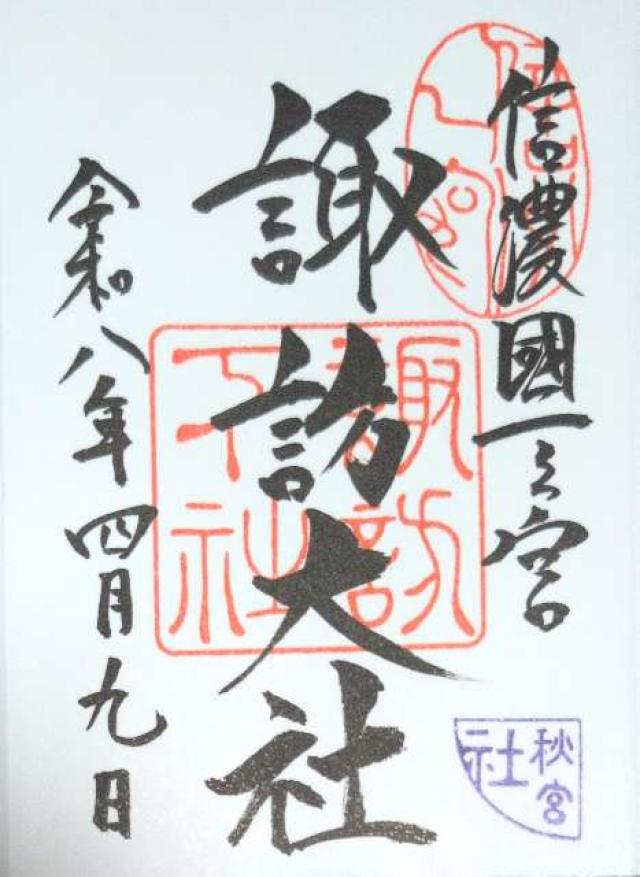 信濃國一之宮
諏訪大社
令和八年四月九日
諏訪
下社
秋宮
社